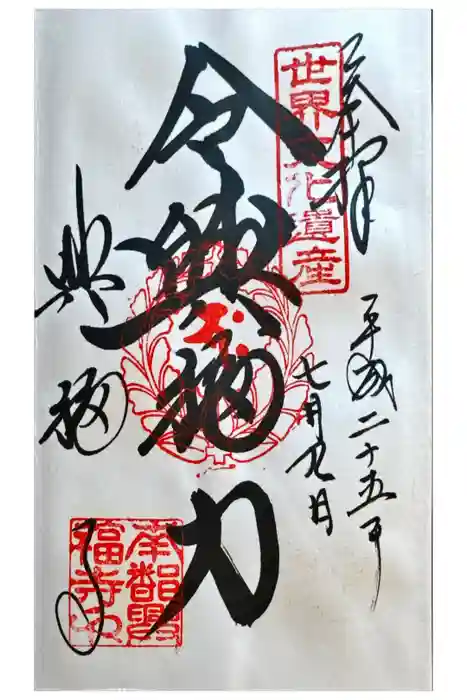 奉拝
世界文化遺産
平成二十五年
七月九日
令興福力
興福寺
南都興福寺印